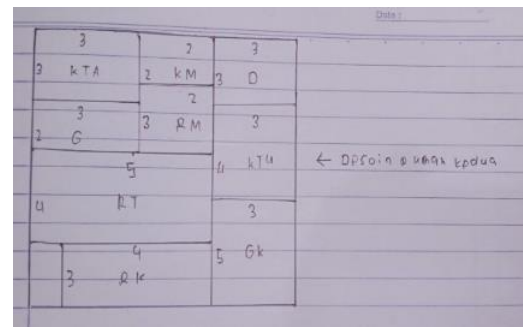 Date :
3 2 3
3 KTA 2 KM 3 D
2
3 3
2 G 3 RM
5 4 KTU ← Desain rumah kedua
4 RT 3
4 5 GK
3 RK